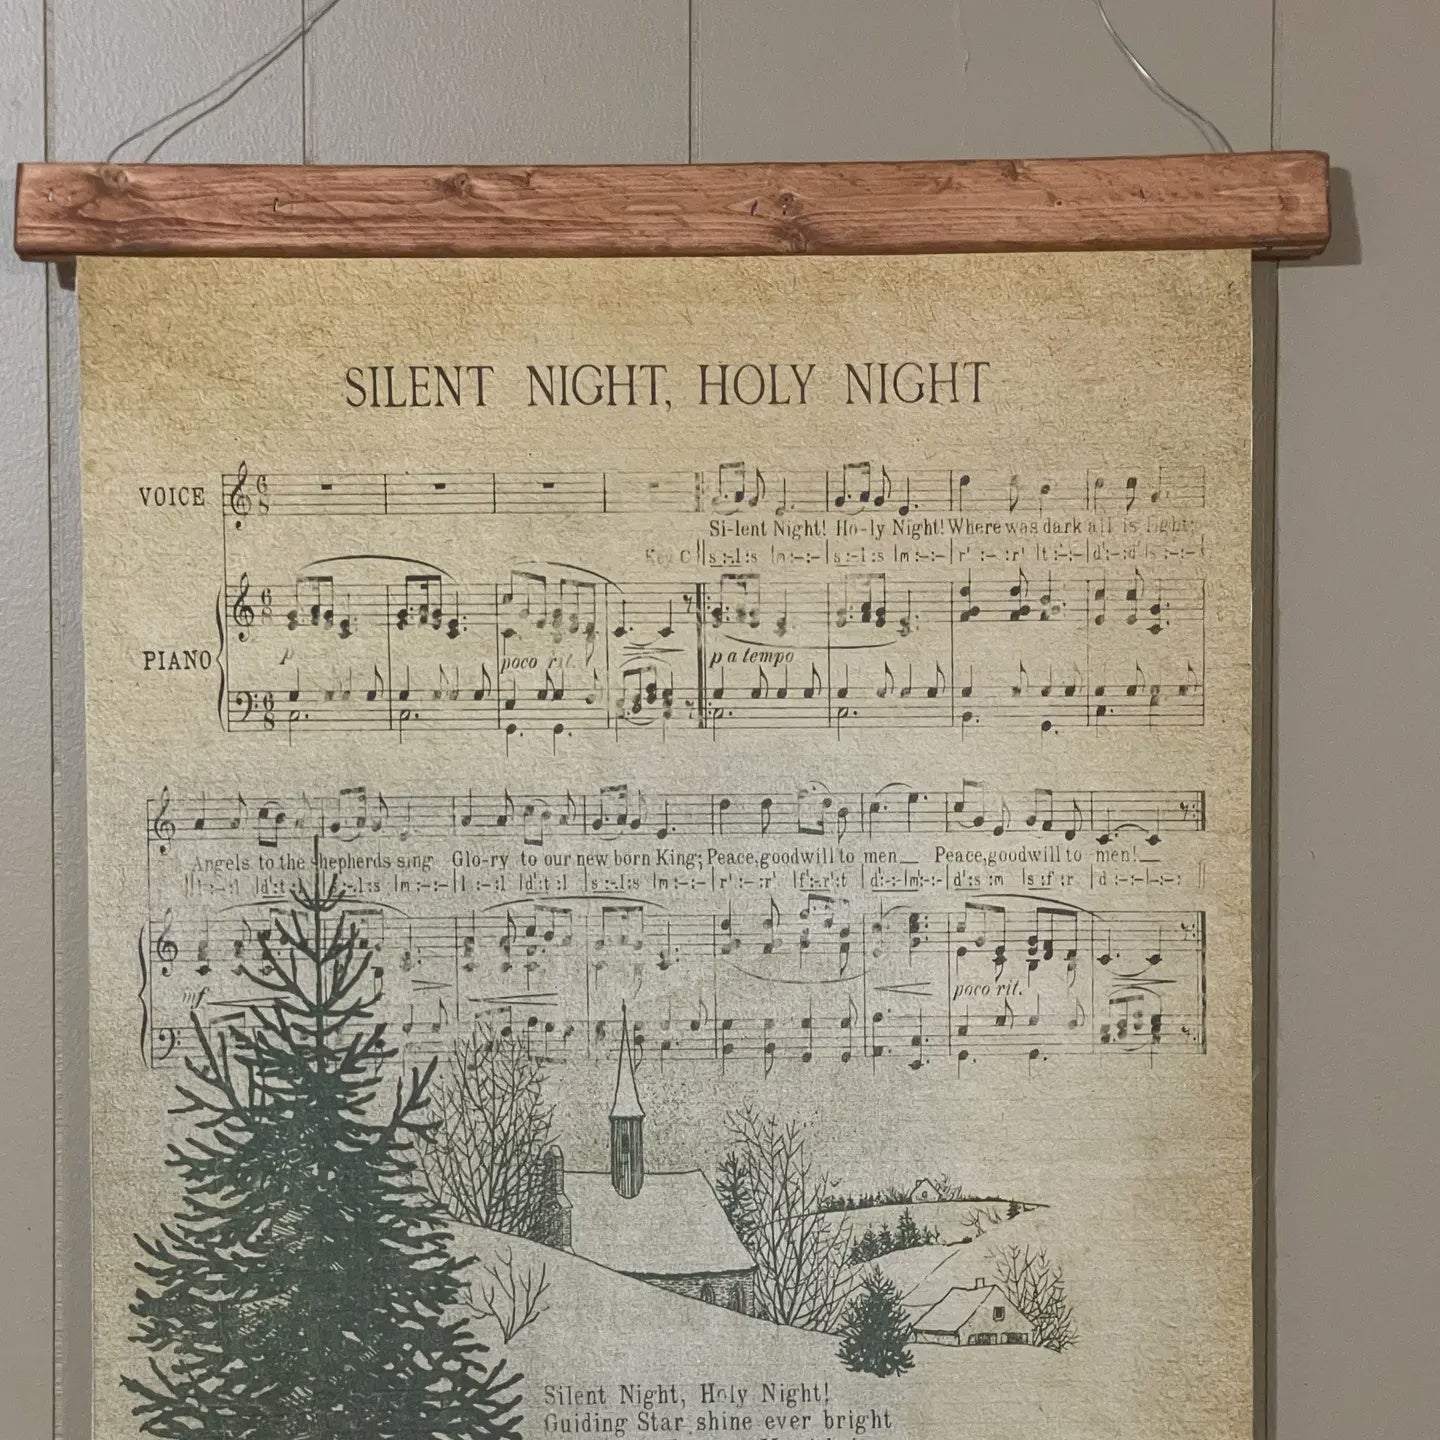 SILENT NIGHT, HOLY NIGHT
VOICE
Si-lent Night! Ho-ly Night! Where was dark all is light;
Key C s :-.l :s m :-:- s :-.l :s m :-:- r' :-:r' t :-:- d' :-:d' s :-:-
PIANO
p
poco rit.
p a tempo
Angels to the shepherds sing Glo-ry to our new born King; Peace, goodwill to men Peace, goodwill to men!
mf
poco rit.
Silent Night, Holy Night!
Guiding Star shine ever bright